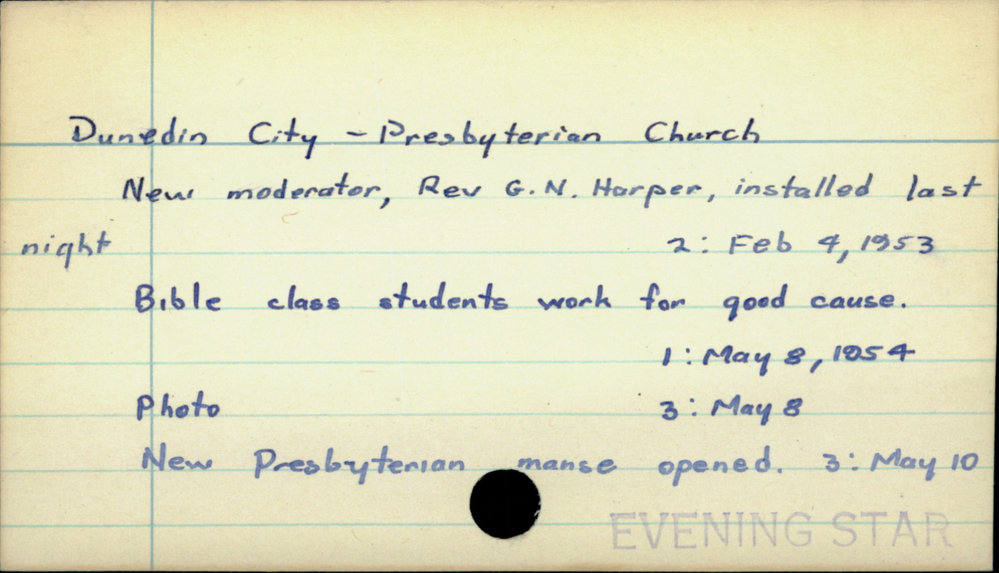 Dunedin City - Presbyterian Church
New moderator, Rev G. N. Harper, installed last
night 2: Feb 4, 1953
Bible class students work for good cause.
1: May 8, 1954
Photo 3: May 8
New Presbyterian manse opened. 3: May 10
EVENING STAR